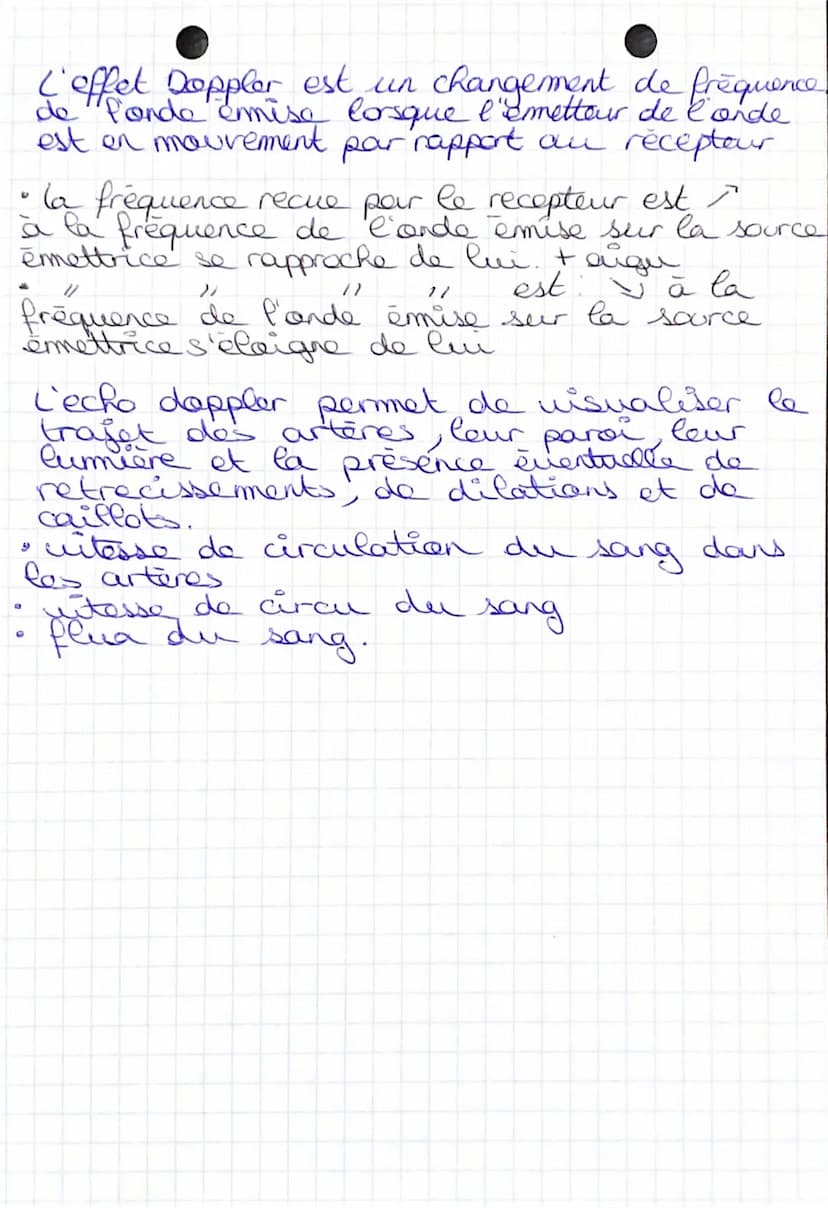 L'effet Doppler est un changement de fréquence
de l'onde émise lorsque l'émetteur de l'onde
est en mouvement par rapport au récepteur
• la fréquence recue par le recepteur est ↗
à la fréquence de l'onde émise sur la source
émettrice se rapproche de lui. + aigu
• " " " " est : ↘ à la
fréquence de l'onde émise sur la source
émettrice s'éloigne de lui
L'echo doppler permet de visualiser le
trajet des artères, leur paroi, leur
lumière et la présence éventuelle de
retrecissements, de dilations et de
caillots.
• vitesse de circulation du sang dans
les artères
• vitesse de circu du sang
• flua du sang.